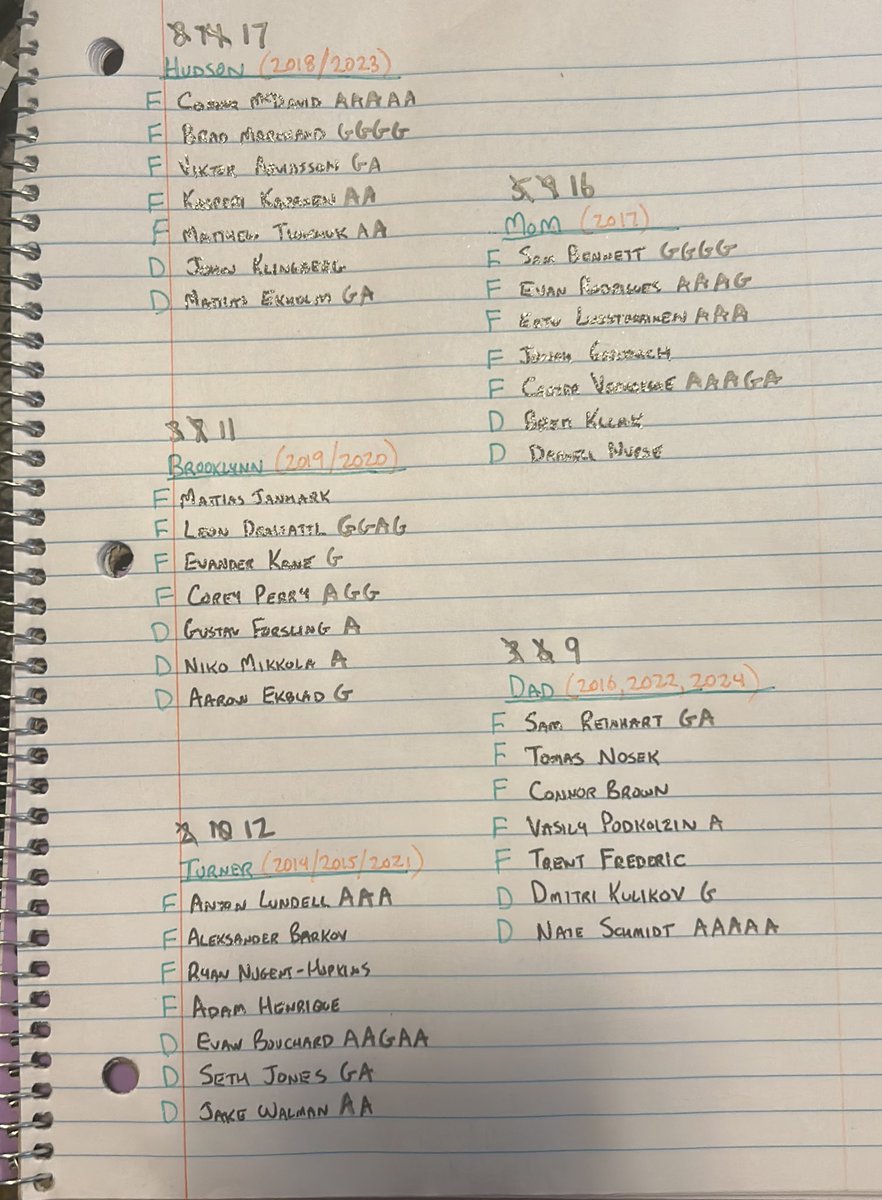 8 14 17
HUDSON (2018/2023)
F CONNOR McDAVID AAAAA
F BRAD MARCHAND GGGG
F VIKTOR ARVIDSSON GA
F KASPERI KAPANEN AA
F MATTHEW TKACHUK AA
D JOHN KLINGBERG
D MATTIAS EKHOLM GA
3 7 11
BROOKLYNN (2019/2020)
F MATTIAS JANMARK
F LEON DRAISAITL GGAG
F EVANDER KANE G
F COREY PERRY AGG
D GUSTAV FORSLING A
D NIKO MIKKOLA A
D AARON EKBLAD G
8 10 12
TURNER (2014/2015/2021)
F ANTON LUNDELL AAA
F ALEKSANDER BARKOV
F RYAN NUGENT-HOPKINS
F ADAM HENRIQUE
D EVAN BOUCHARD AAGAA
D SETH JONES GA
D JAKE WALMAN AA
5 9 16
MOM (2017)
F SAM BENNETT GGGG
F EVAN RODRIGUES AAAG
F EETU LUOSTARINEN AAA
F
F CARTER VERHAEGHE AAAGA
D BRETT KULAK
D DARNELL NURSE
3 8 9
DAD (2016, 2022, 2024)
F SAM REINHART GA
F TOMAS NOSEK
F CONNOR BROWN
F VASILY PODKOLZIN A
F TRENT FREDERIC
D DMITRI KULIKOV G
D NATE SCHMIDT AAAAA